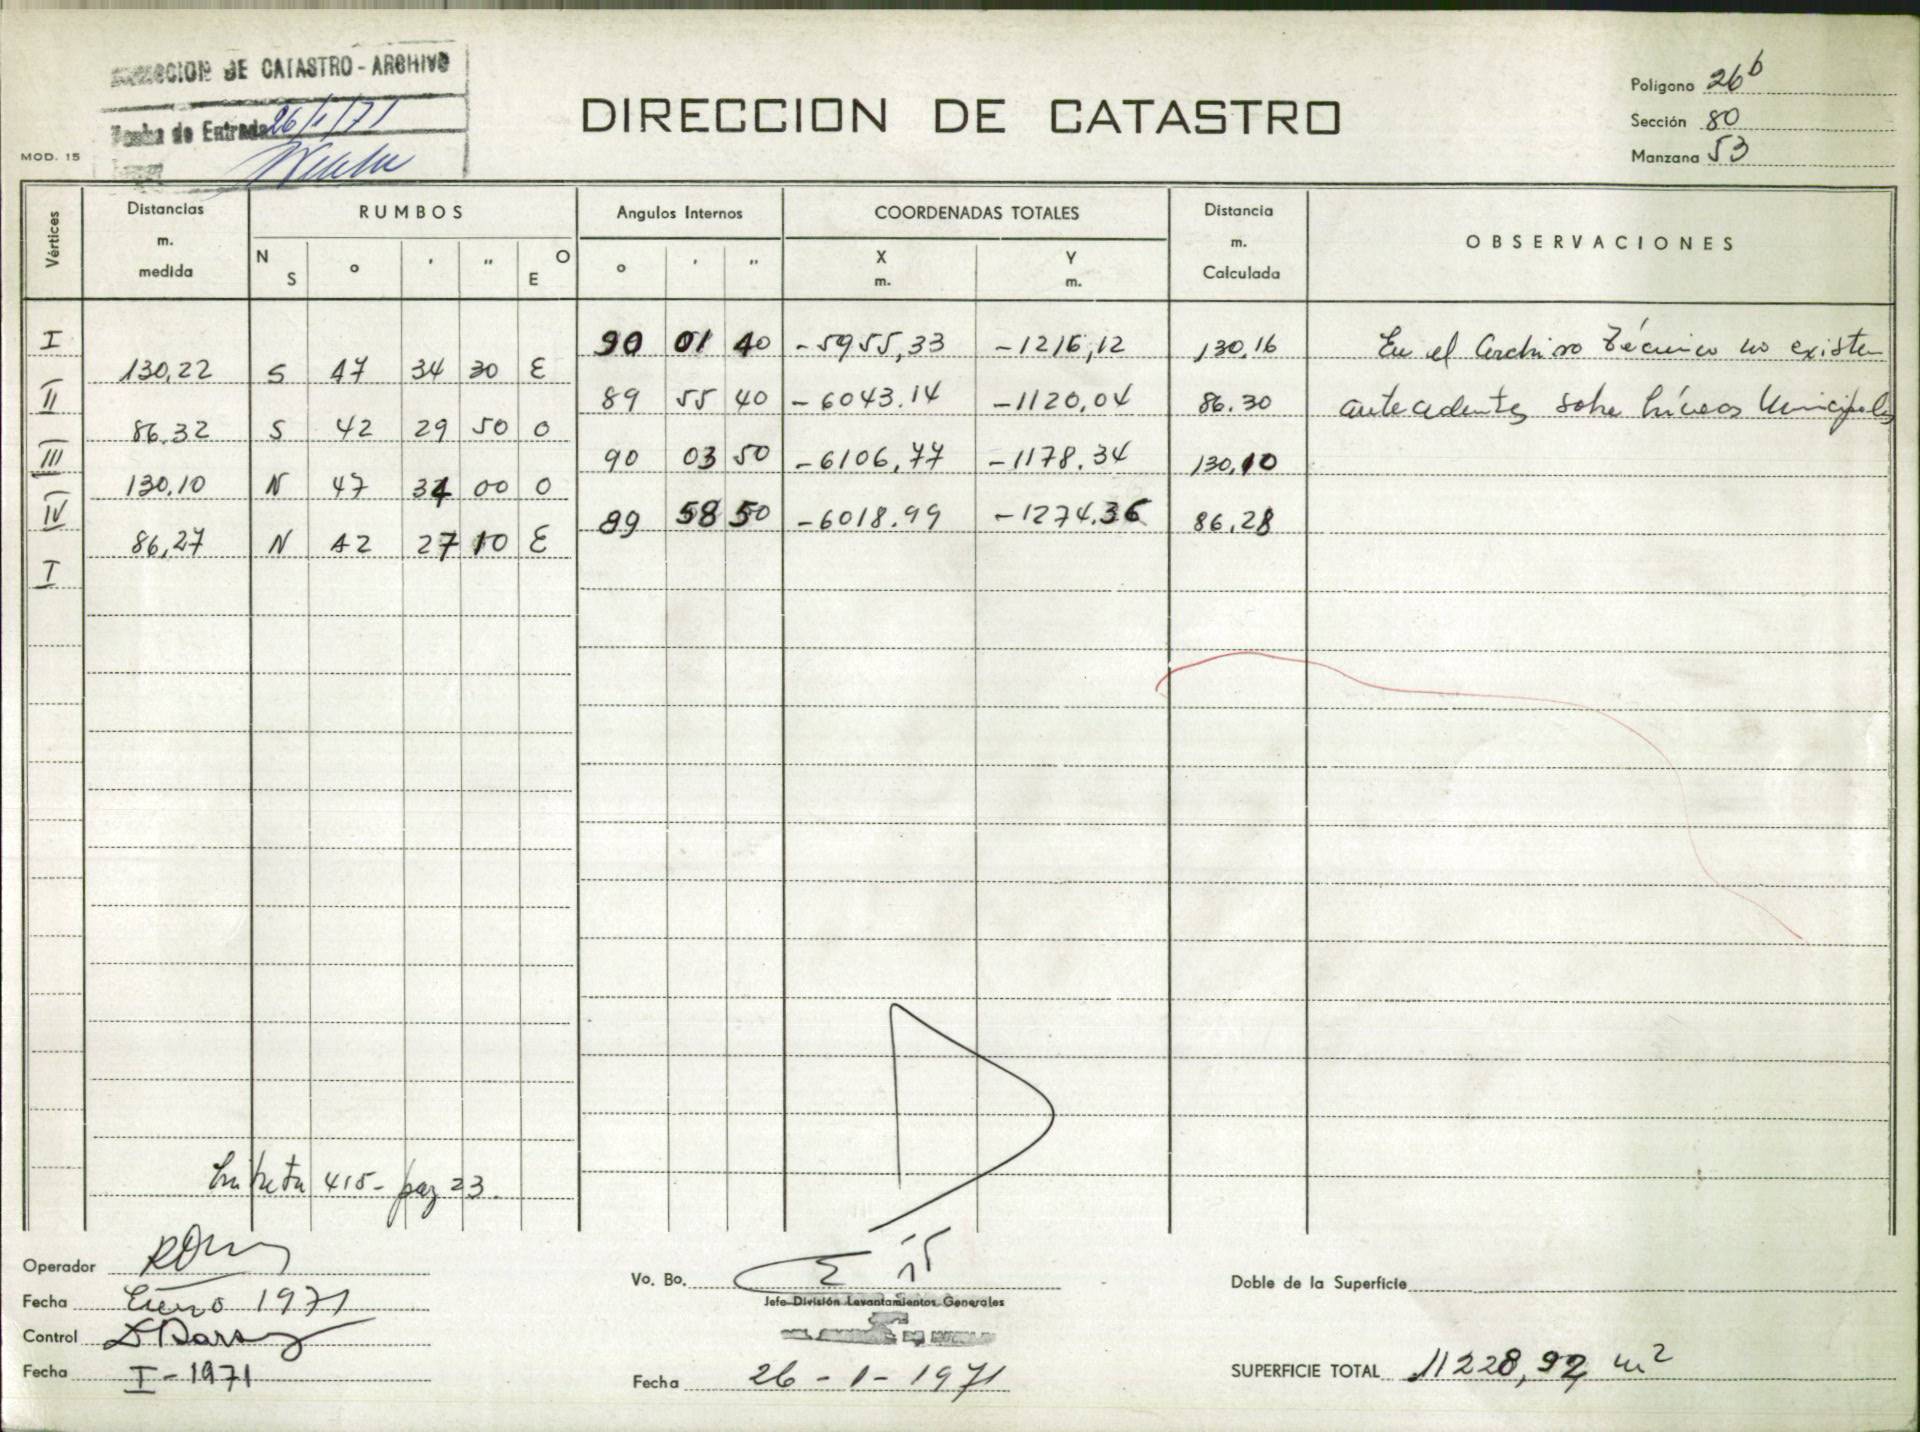 DIRECCION DE CATASTRO - ARCHIVO
Fecha de Entrada 26/1/71
MOD. 15
DIRECCION DE CATASTRO
Poligono 26b
Sección 80
Manzana 53
Vértices
Distancias m. medida
RUMBOS
N S ° ' " O E
Angulos Internos
° ' "
COORDENADAS TOTALES
X m. Y m.
Distancia m. Calculada
OBSERVACIONES
I 90 01 40 -5955,33 -1216,12 130,16 En el Archivo Técnico no existen
130,22 S 47 34 30 E
II 89 55 40 -6043.14 -1120,04 86.30 antecedentes sobre líneas Municipales
86,32 S 42 29 50 O
III 90 03 50 -6106,77 -1178.34 130,10
130,10 N 47 34 00 O
IV 89 58 50 -6018.99 -1274.36 86,28
86,27 N 42 27 10 E
I
Libreta 415- pag 23.
Operador
Fecha Enero 1971
Control
Fecha I-1971
Vo. Bo.
Jefe División Levantamientos Generales
Fecha 26-1-1971
Doble de la Superficie
SUPERFICIE TOTAL 11228,92 m2